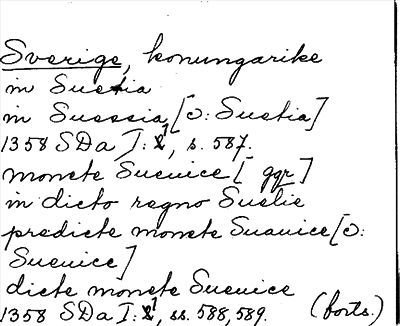 Sverige, konungarike
in Suetia
in Suessia [ɔ: Suetia]
1358 SDa I:1, s. 587.
monete Sueuice [ ggr]
in dicto regno Suelie
predicte monete Suauice [ɔ:
Sueuice]
dicte monete Sueuice
1358 SDa I:1, ss. 588, 589. (forts.)